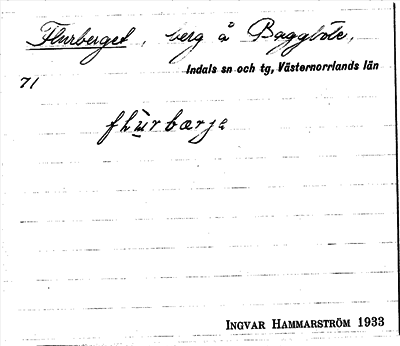 Flurberget, berg å Baggböle,
Indals sn och tg, Västernorrlands län
71
flùrbærje
INGVAR HAMMARSTRÖM 1933